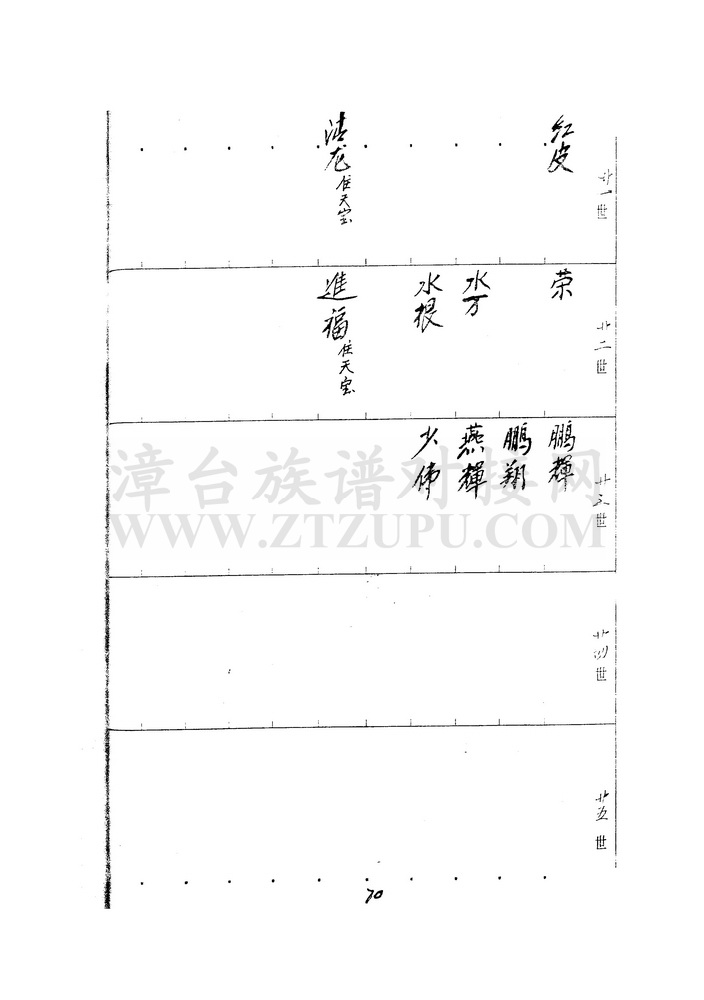 廿一世
红皮
清龙住天宝
廿二世
荣
水万
水根
進福住天宝
廿三世
鵬輝
鵬翔
燕輝
少偉
廿四世
廿五世
70
漳台族谱对接网
WWW.ZTZUPU.COM